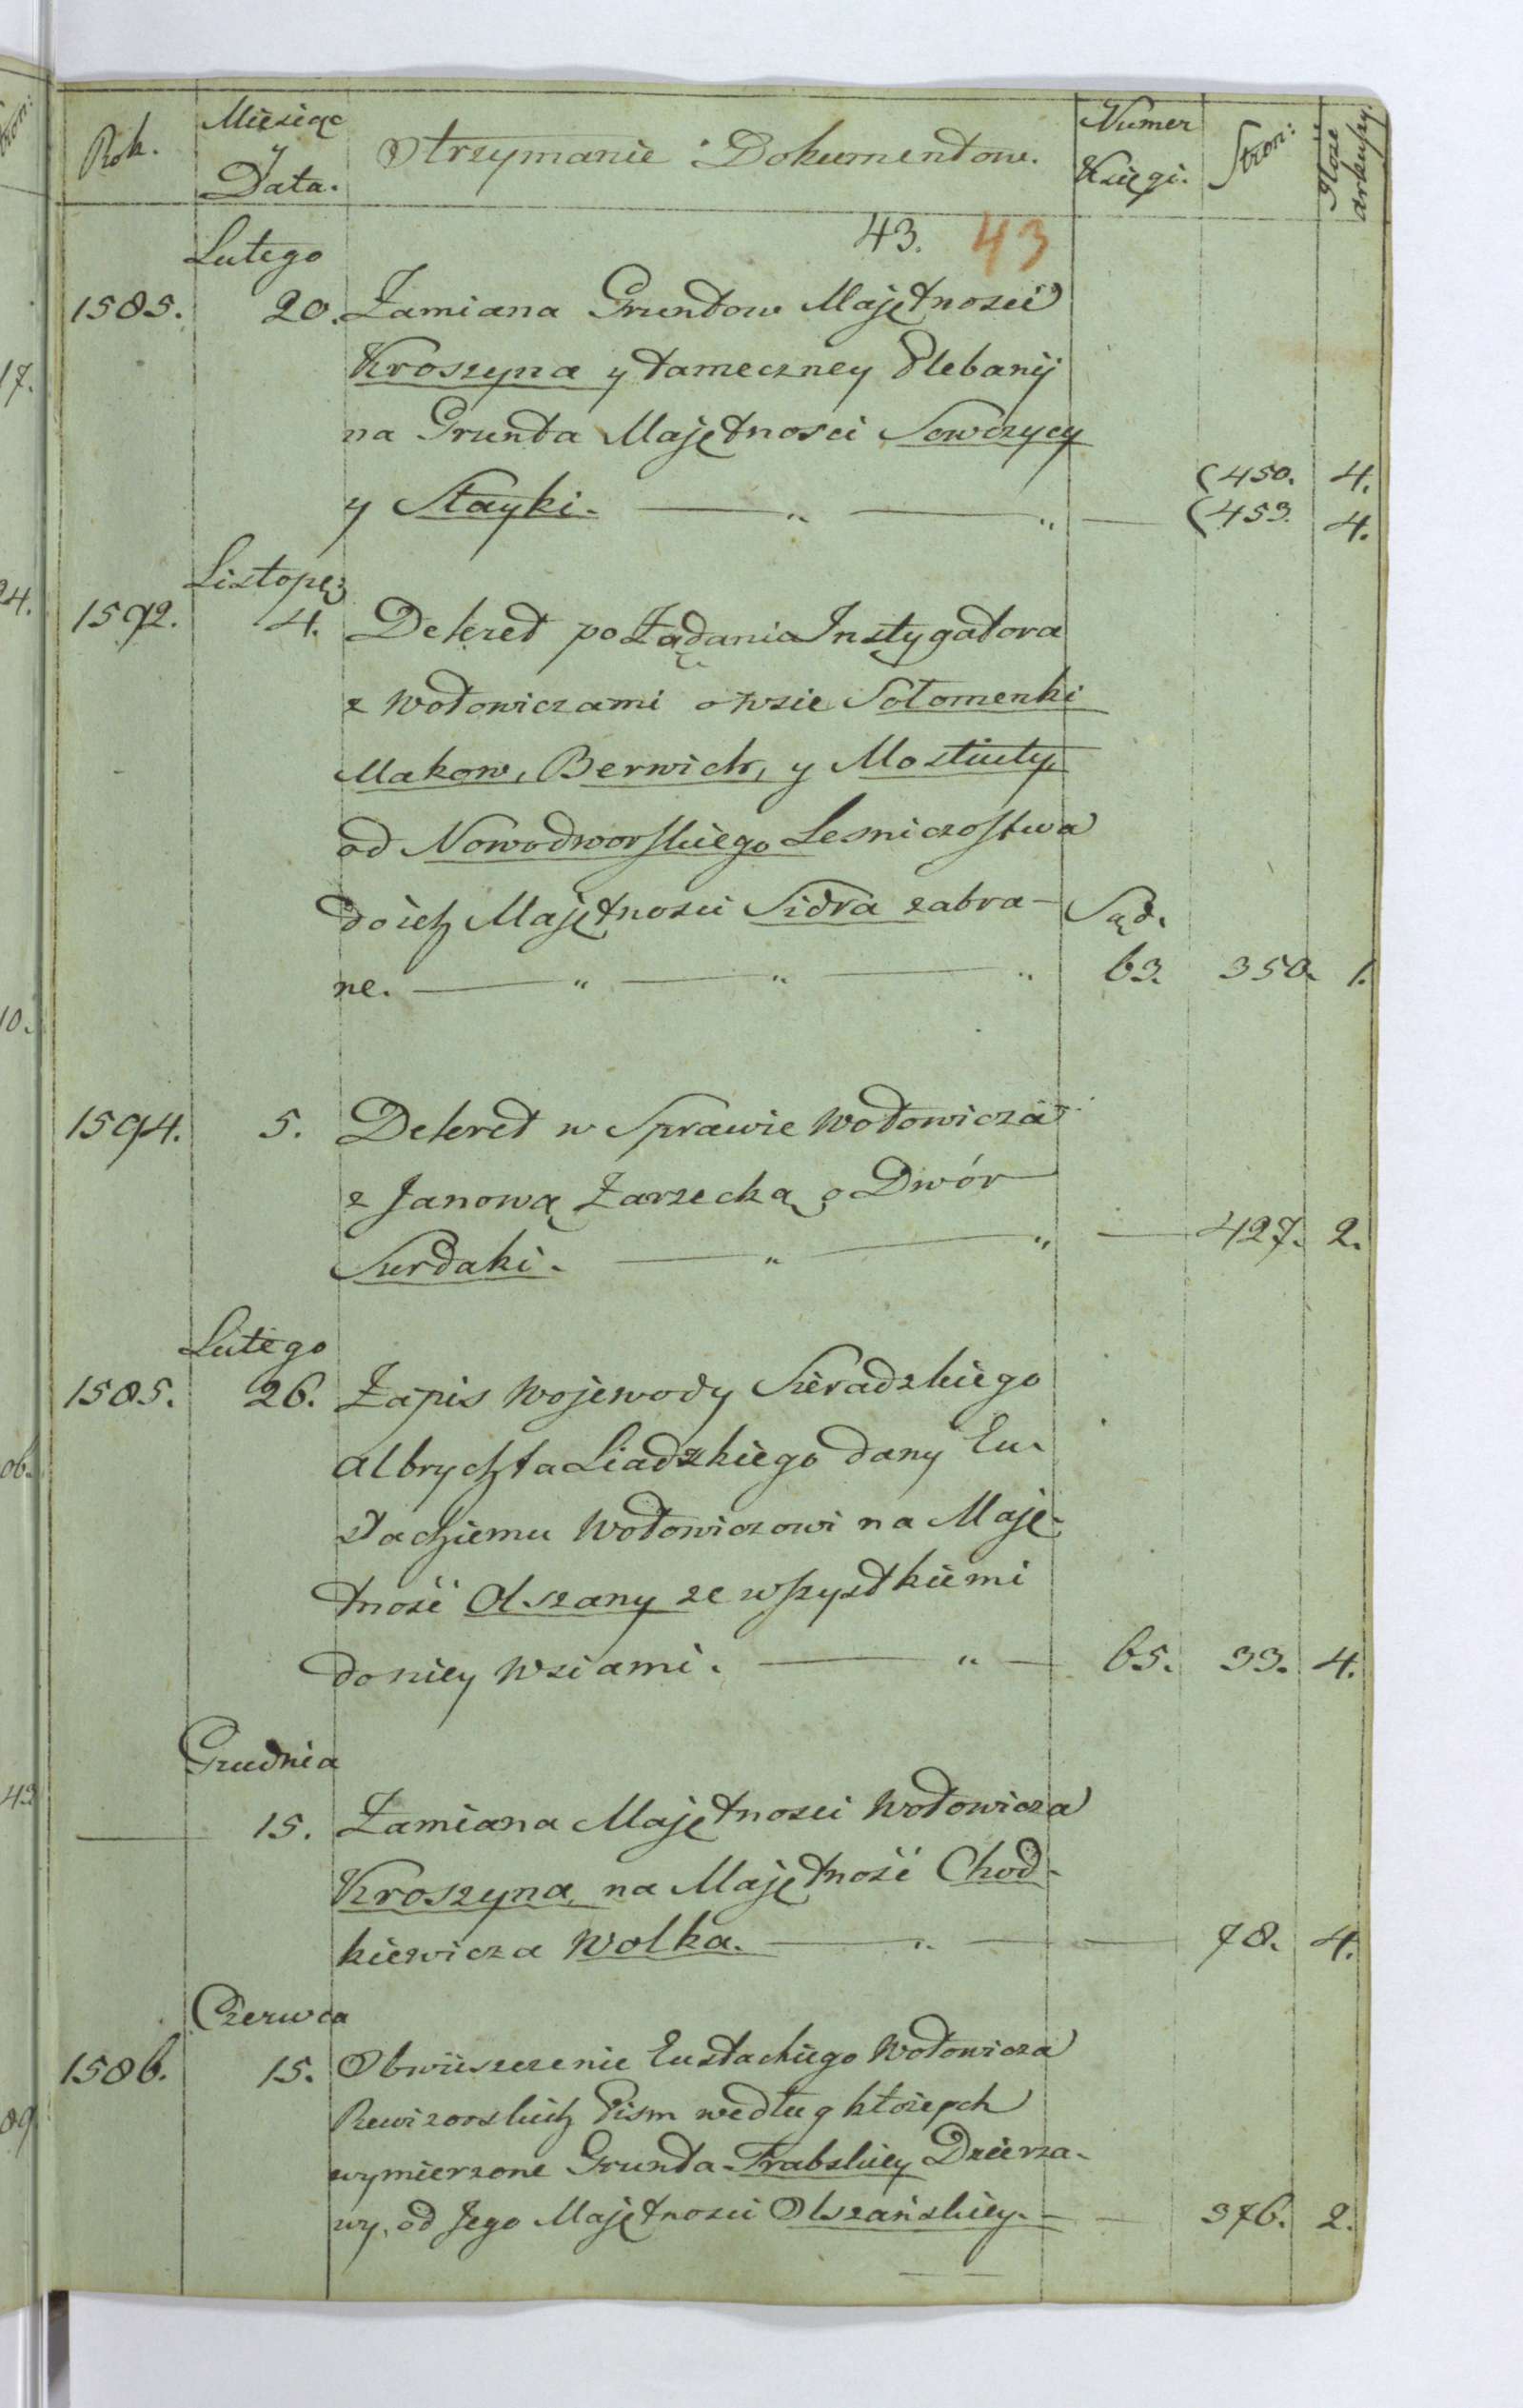 Rok. Miesiąc y Data. Otrzymanie Dokumentow. Numer Księgi. Stron: Ilość arkuszy.
43. 43
Lutego
1585. 20. Zamiana Gruntow Majętnosci
Kroszyna y tameczney Plebanij
na Grunta Majętnosci Sowczycy
(450. 4.
y Stayki. — „ — „ — (453. 4.
Listop:
1592. 4. Dekret po Żądania Instygatora
z Wołowiczami o wsie Sołomenki
Makow, Berwich, y Mostiuty,
od Nowodworskiego Lesniczostwa
do ich Majętnosci Sidra zabra- Sąd.
ne. — „ — „ — „ 63. 350. 1.
1594. 5. Dekret w Sprawie Wołowicza
z Janową Zarzecką o Dwór
Surdaki. — „ — „ — 427. 2.
Lutego
1585. 26. Zapis Wojewody Sieradzkiego
Albrychta Liadzkiego dany Eu-
stachiemu Wołowiczowi na Maję-
tność Olszany ze wszystkiemi
do niey Wsiami. — „ — 65. 33. 4.
Grudnia
— 15. Zamiana Majętnosci Wołowicza
Kroszyna, na Majętność Chod-
kiewicza Wolka. — „ — — 78. 4.
Czerwca
1586. 15. Obwieszczenie Eustachiego Wołowicza
Rewizorskich Pism według których
wymierzone Grunta Trabskiey Dzierża-
wy, od Jego Majętnosci Olszańskiey. — — 376. 2.